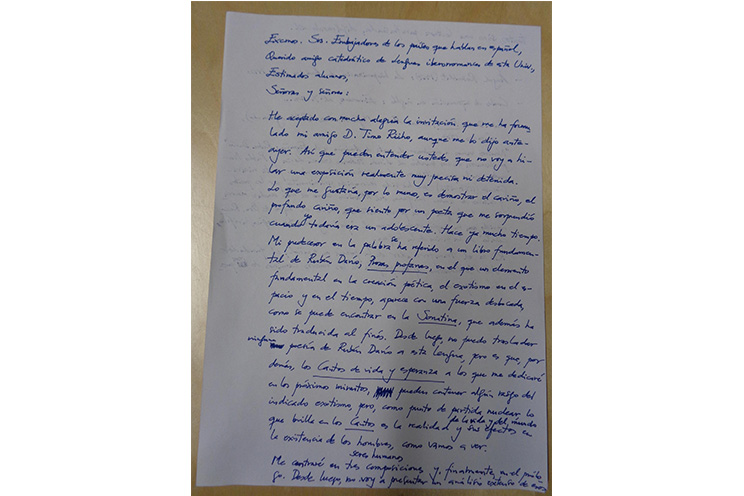 Excmos. Srs. Embajadores de los países que hablan en español,
Querido amigo catedrático de Lenguas iberorrománicas de esta Univ.,
Estimados alumnos,
Señoras y señores:
He aceptado con mucha alegría la invitación que me ha formu
lado mi amigo D. Timo Riiho, aunque me lo dijo ante-
ayer. Así que pueden entender ustedes que no voy a hi-
lar una exposición realmente muy precisa ni detenida.
Lo que me gustaría, por lo menos, es demostrar el cariño, el
profundo cariño, que siento por un poeta que me sorprendió
cuando yo todavía era un adolescente. Hace ya mucho tiempo.
Mi predecesor en la palabra se ha referido a un libro fundamen-
tal de Rubén Darío, Prosas profanas, en el que un elemento
fundamental en la creación poética, el exotismo en el es-
pacio y en el tiempo, aparece con una fuerza destacada,
como se puede encontrar en la Sonatina, que además ha
sido traducida al finés. Desde luego, no puedo trasladar
ninguna poesía de Rubén Darío a esta lengua, pero es que, por
demás, los Cantos de vida y esperanza a los que me dedicaré
en los próximos minutos, pueden contener algún rasgo del
indicado exotismo, pero, como punto de partida, nuclear, lo
que brilla en los Cantos es la realidad de la vida y del mundo y sus efectos en
la existencia de los hombres, como vamos a ver.
seres humanos
Me centraré en tres composiciones y, finalmente, en el prólo
go. Desde luego, no voy a presentar un análisis extenso de